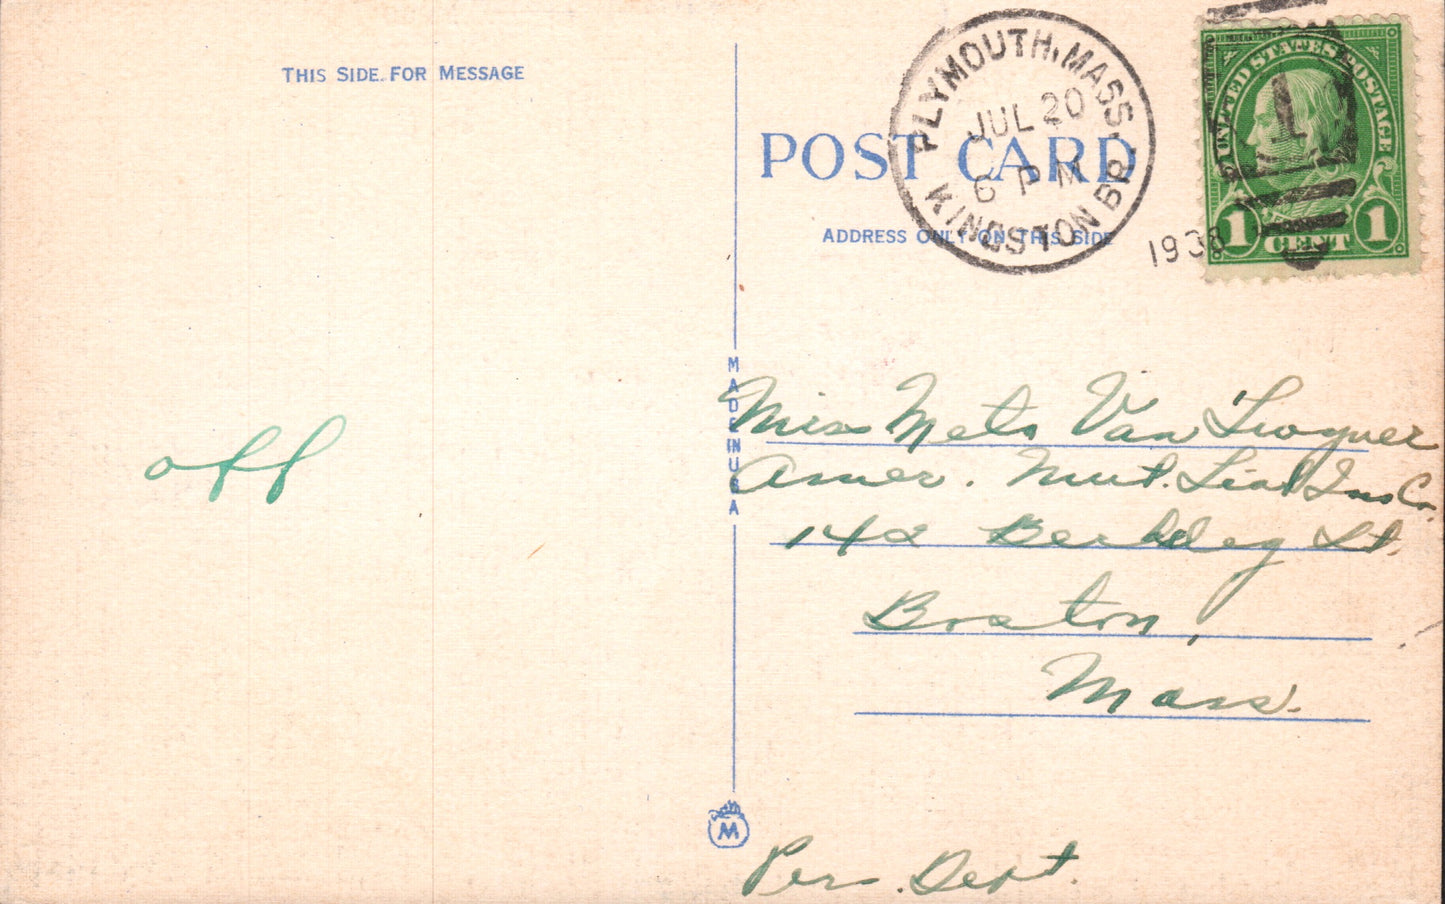 THIS SIDE FOR MESSAGE
POST CARD
ADDRESS ONLY ON THIS SIDE
PLYMOUTH, MASS.
JUL 20
6 PM
KINGSTON BR.
1938
UNITED STATES POSTAGE
1 CENT 1
MADE IN USA
off
Miss Meta Van
Amer. Mut. Liab Ins Co.
142 Berkeley St.
Boston,
Mass.
M
Pers. Dept.